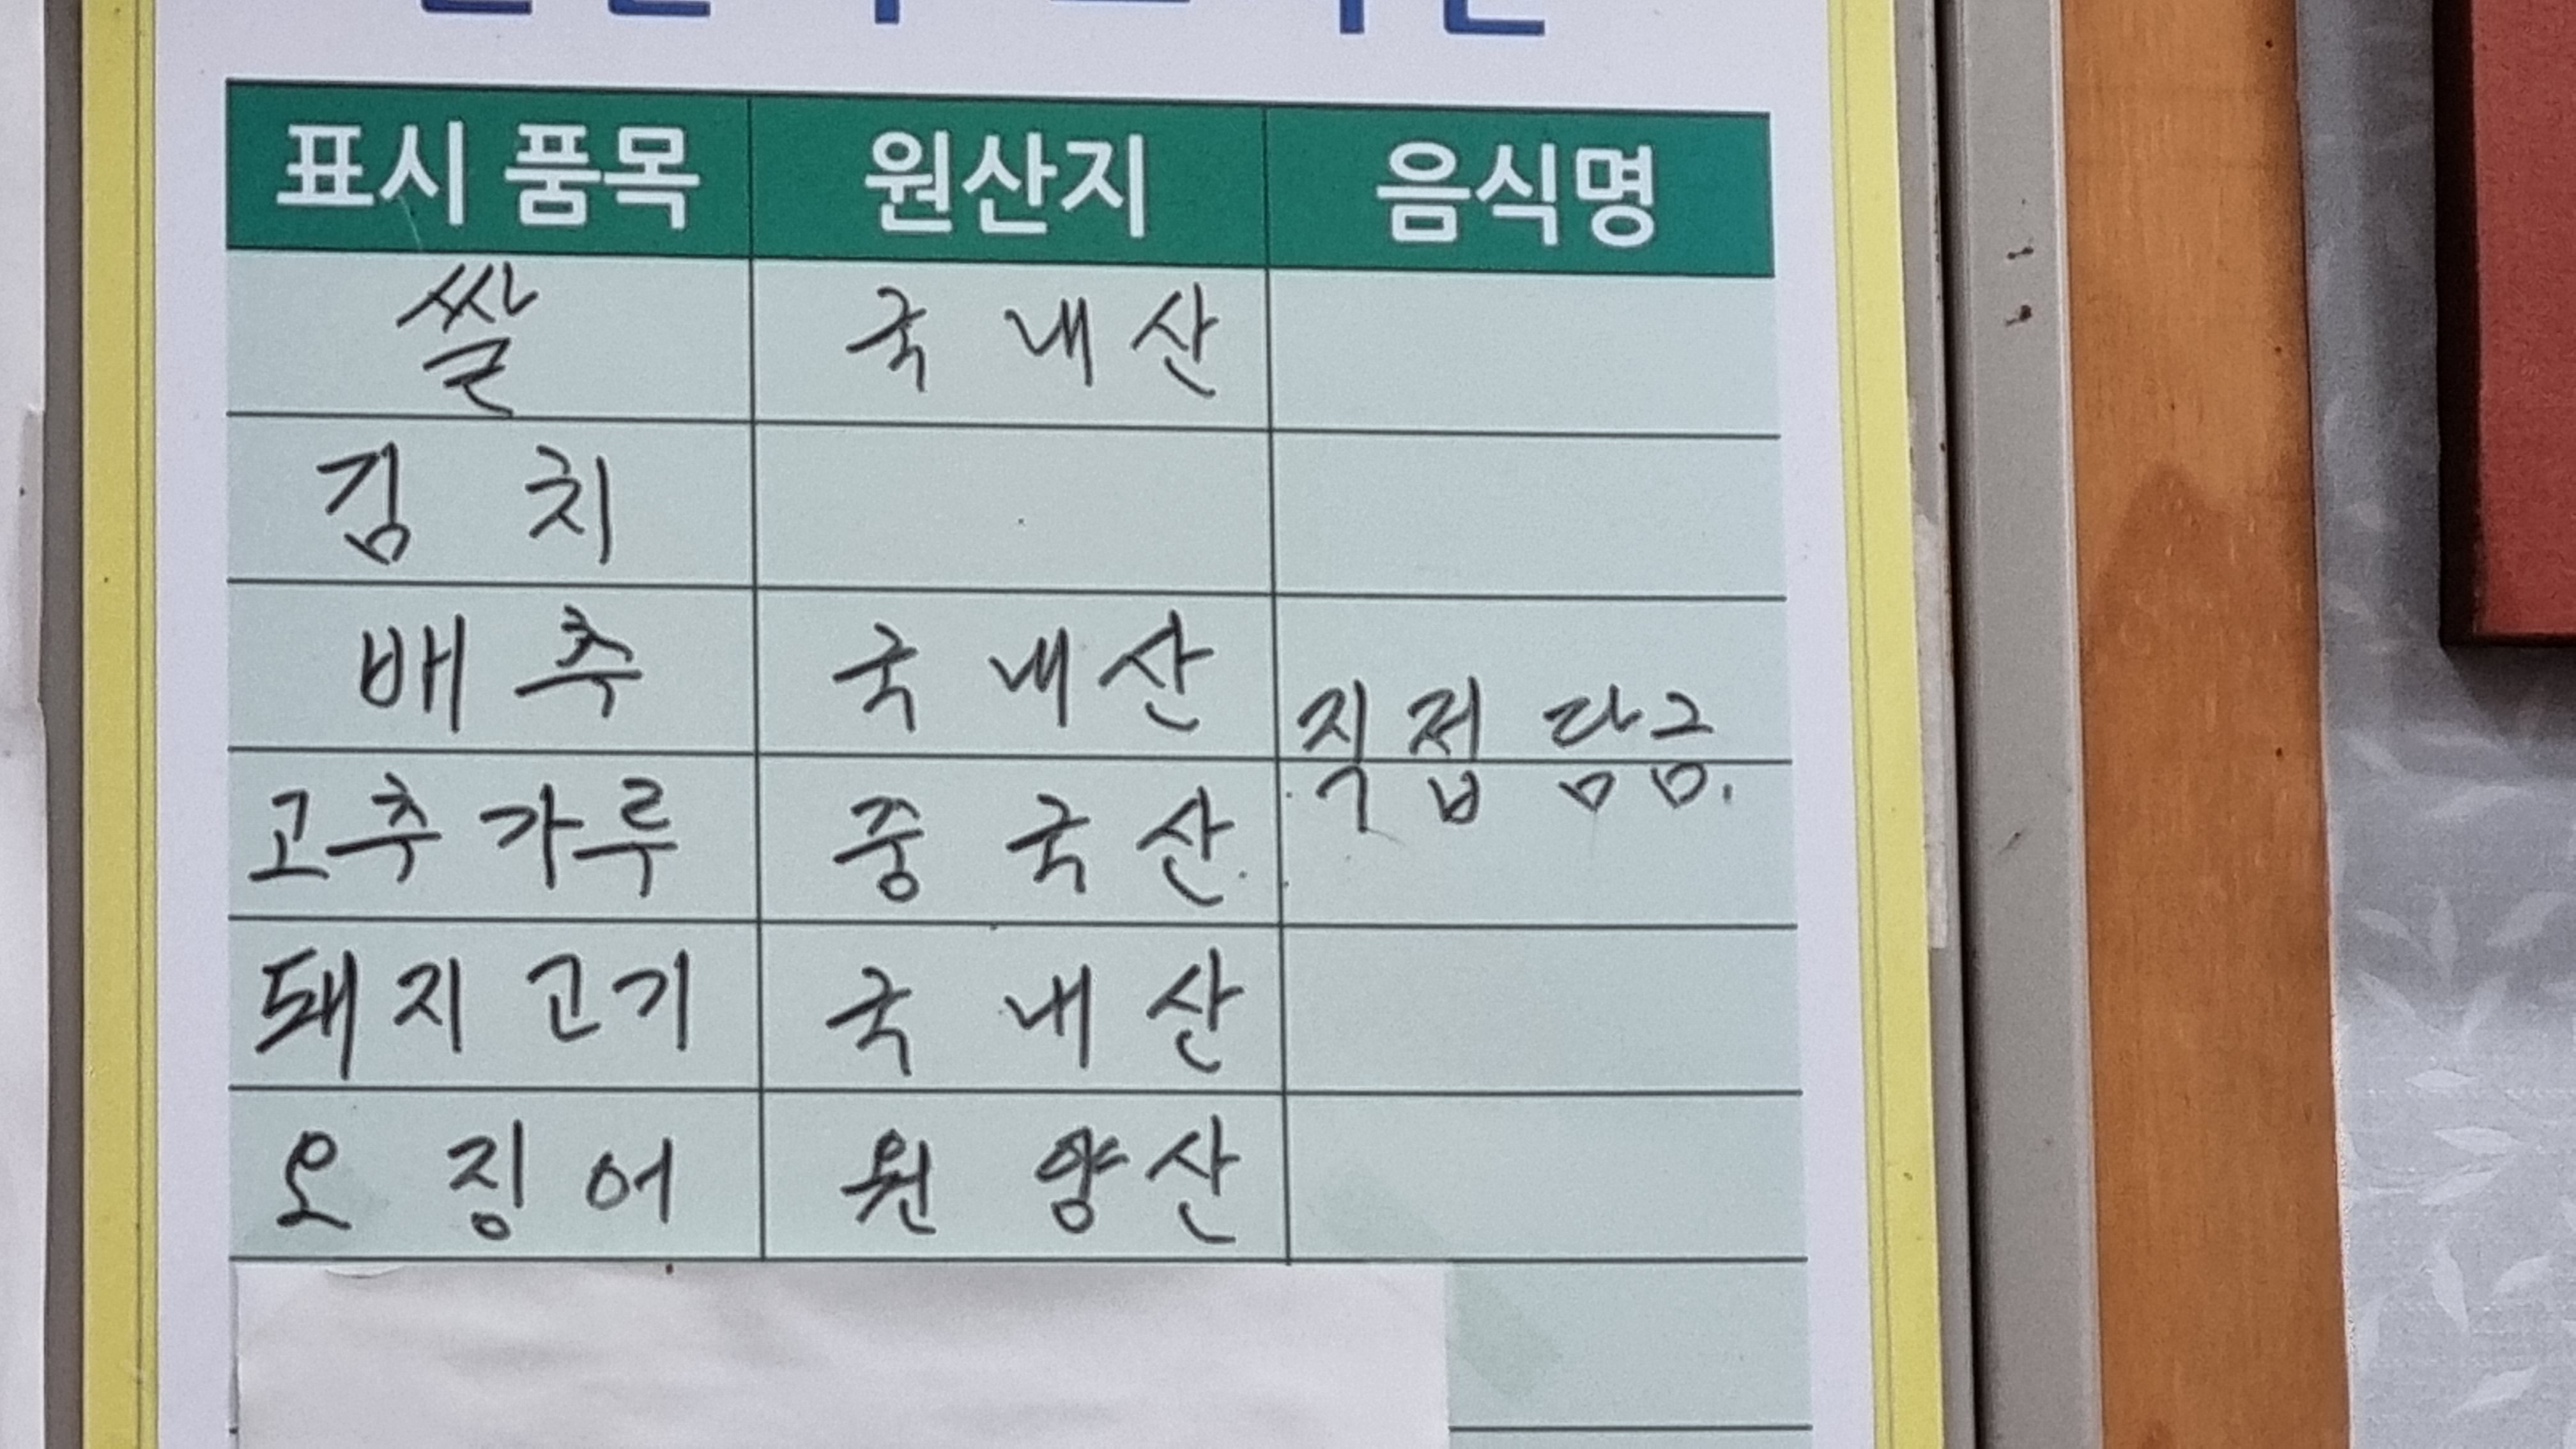 표시 품목 원산지 음식명
쌀 국내산
김치
배추 국내산
직접 담금.
고추가루 중국산.
돼지고기 국내산
오징어 원양산